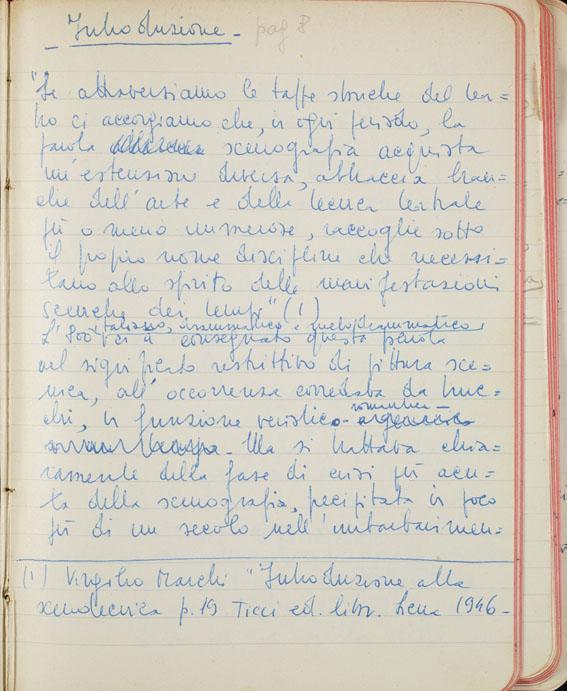 Introduzione - pag 8
"Se attraversiamo le tappe storiche del tea=
tro ci accorgiamo che, in ogni periodo, la
parola scenografia acquista
un'estensione diversa, abbraccia bran=
che dell'arte e della tecnica teatrale
più o meno numerose, raccoglie sotto
il proprio nome discipline che necessi=
tano allo spirito delle manifestazioni
sceniche dei tempi" (1)
italiano, drammatico e melodrammatico
L'800 ci à consegnato questa parola
nel significato restrittivo di pittura sce=
nica, all'occorrenza corredata da truc=
chi, in funzione veristico-
romantica -
Ma si trattava chia=
ramente della fase di crisi più acu=
ta della scenografia, precipitata in poco
più di un secolo nell'imbarbarimen=
(1) Virgilio Marchi "Introduzione alla
scenotecnica p. 19 Ticci ed. libr. Siena 1946 -